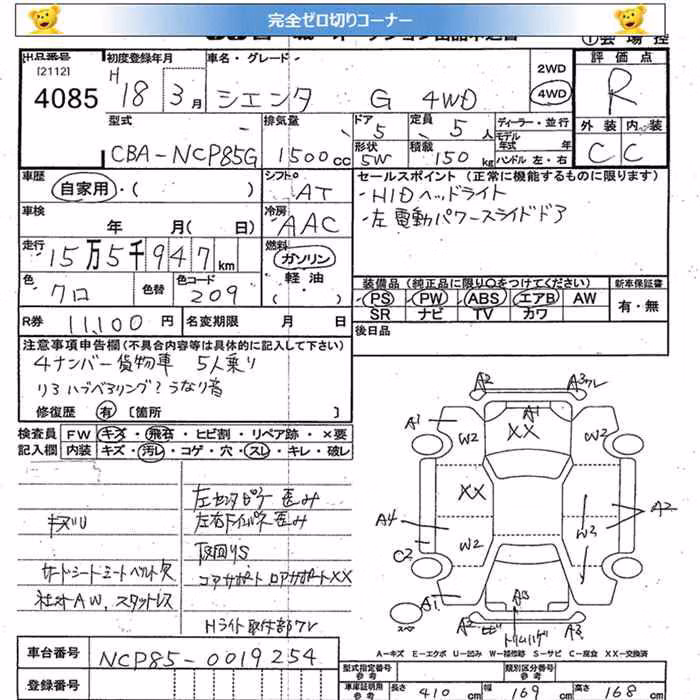 完全ゼロ切りコーナー
出品番号
[2112]
4085
初度登録年月
H 18 3月
車名・グレード
シエンタ G 4WD
2WD
4WD
評価点
R
外装 内装
C C
型式
CBA-NCP85G
排気量
1500cc
ドア
5
形状
5W
定員
5人
積載
150kg
ディーラー・並行
モデル
年式 年
ハンドル 左・右
車歴
自家用・( )
シフト
AT
セールスポイント (正常に機能するものに限ります)
・HIDヘッドライト
・左電動パワースライドドア
車検
年 月( 日)
冷房
AAC
走行
15万5千947km
燃料
ガソリン
軽油
色
クロ
色替
色コード
209
装備品 (純正品に限り○をつけてください) 新車保証書
PS PW ABS エアB AW
SR ナビ TV カワ
有・無
R券
11,100円
名変期限 月 日
後日品
注意事項申告欄(不具合内容等は具体的に記入して下さい)
4ナンバー貨物車 5人乗り
リヨハブベアリング?うなり音
修復歴 有 [箇所 ]
検査員 FW キズ・飛石・ヒビ割・リペア跡・×要
記入欄 内装 キズ・汚レ・コゲ・穴・スレ・キレ・破レ
キズU
サードシートシートベルト欠
社外AW、スタットレス
左センタピラー歪み
左右ドインパネ歪み
コアサポート ロアサポートXX
Hライト取付部ワレ
A2
A3ワレ
A1
A1
XX
W2
W2
XX
A4
A2
W3
W2
C2
A1
A3
A2
ヒビ
A3
スペア
A-キズ E-エクボ U-凹み W-補修跡 S-サビ C-腐食 XX-交換済
車台番号
NCP85-0019254
登録番号
型式指定番号
参考
類別区分番号
参考
車庫証明用
参考
長さ 410 cm
幅 169 cm
高さ 168 cm